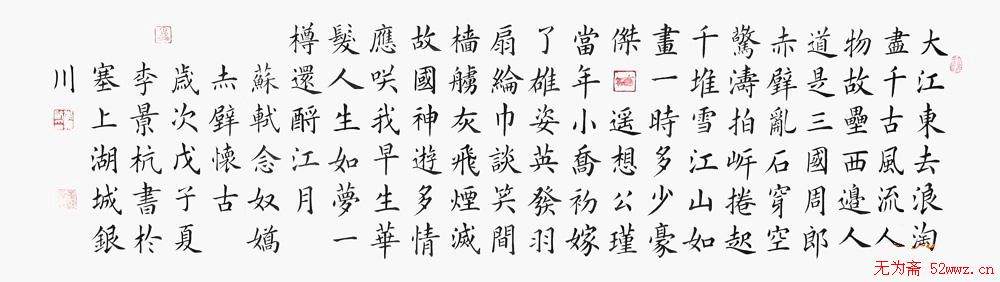 大江東去浪淘
盡千古風流人
物故壘西邊人
道是三國周郎
赤壁亂石穿空
驚濤拍岸捲起
千堆雪江山如
畫一時多少豪
傑遥想公瑾
當年小喬初嫁
了雄姿英發羽
扇綸巾談笑間
檣艣灰飛煙滅
故國神遊多情
應咲我早生華
髮人生如夢一
樽還酹江月
蘇軾念奴嬌
赤壁懷古
歲次戊子夏
李景杭書於
塞上湖城銀
川
无为斋 52wwz.cn